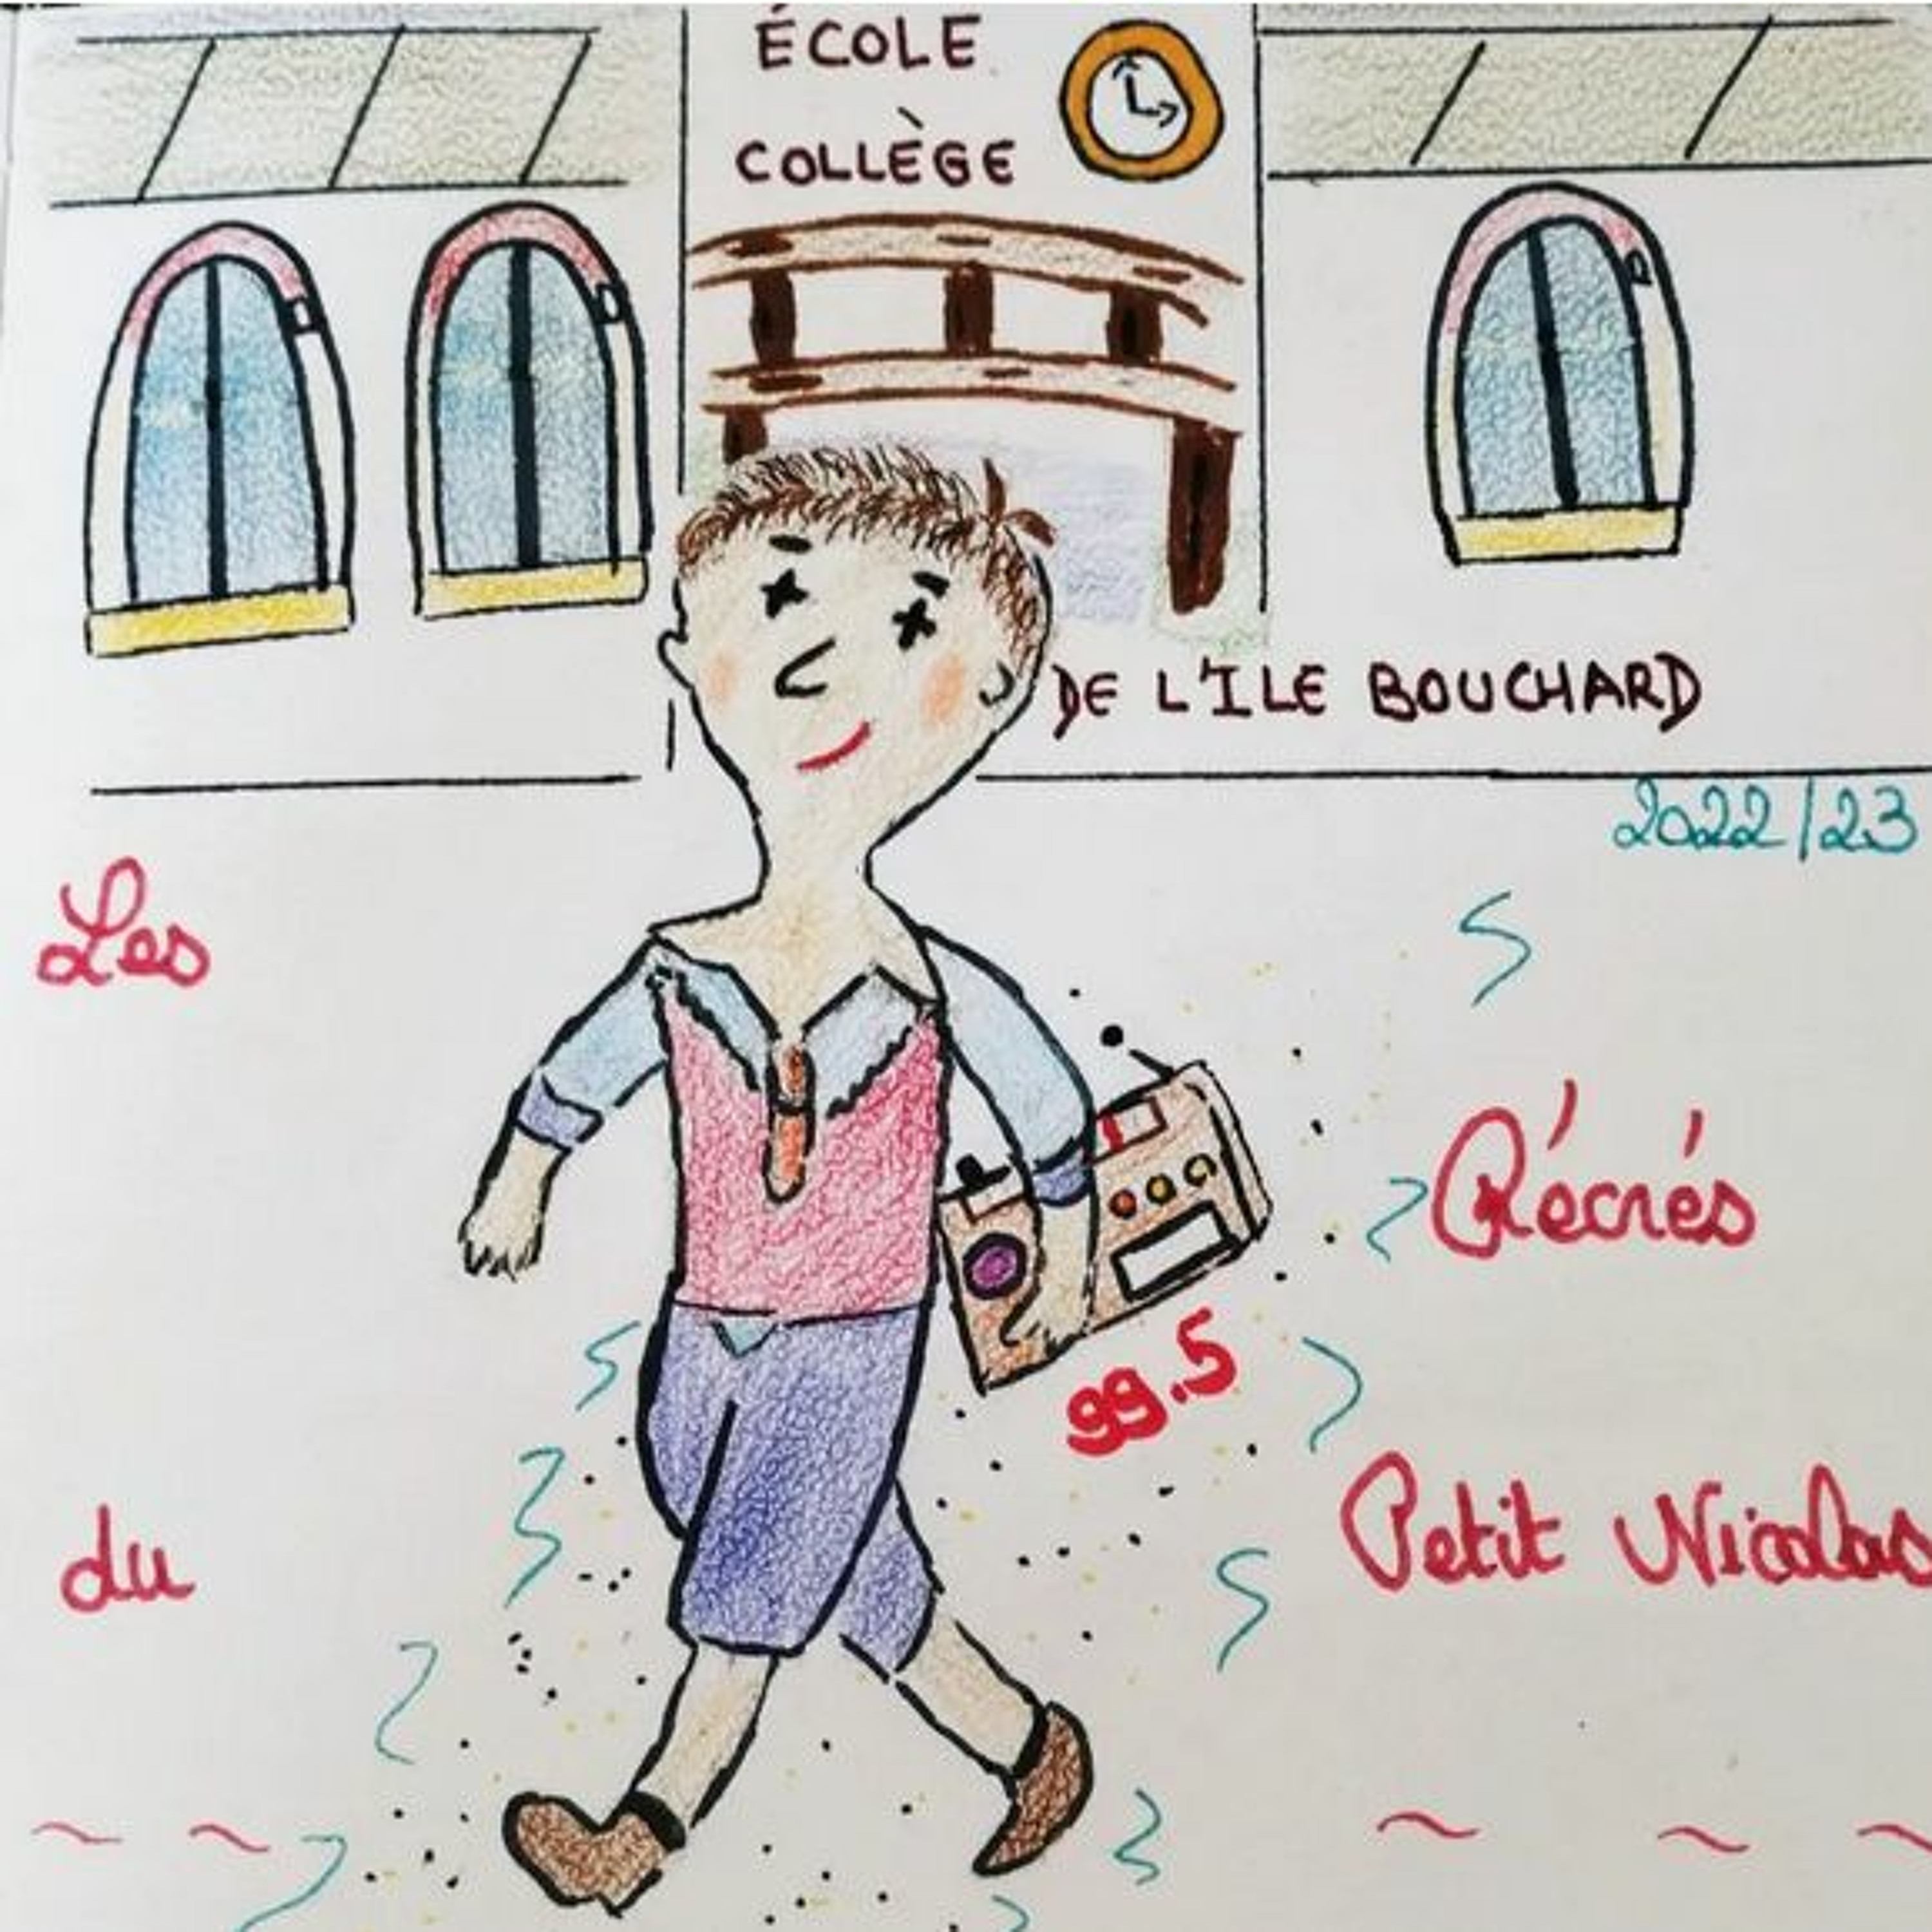 ÉCOLE
COLLÈGE
DE L'ILE BOUCHARD
2022/23
Les
Récrés
99.5
du
Petit Nicolas